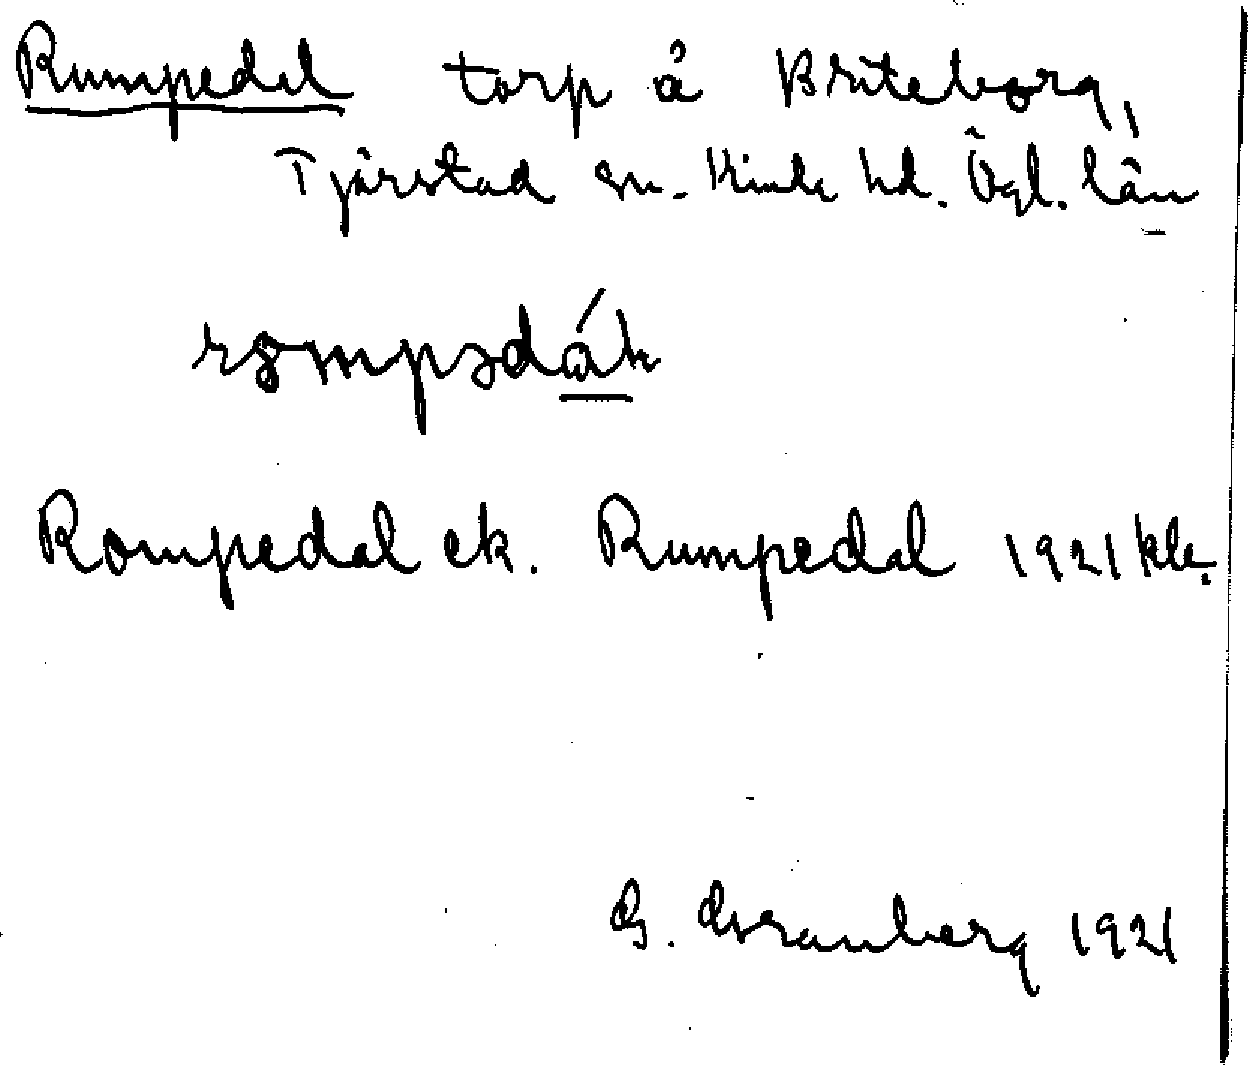 Rumpedal torp å Briteborg,
Tjärstad sn. Kinda hd. Ögl. län
Rompedal ek. Rumpedal 1921 kle.
G. Granberg 1921